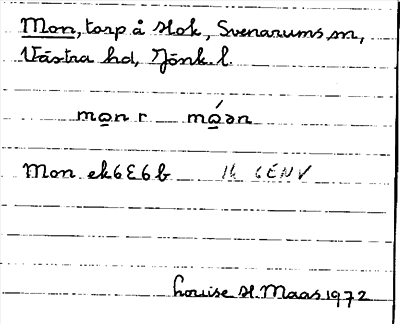 Mon, torp å Hok, Svenarums sn,
Västra hd, Jönk. l.
mo̲n r mó̲ən
Mon ek6E6b 1h 6ENV
Louise H. Maas 1972